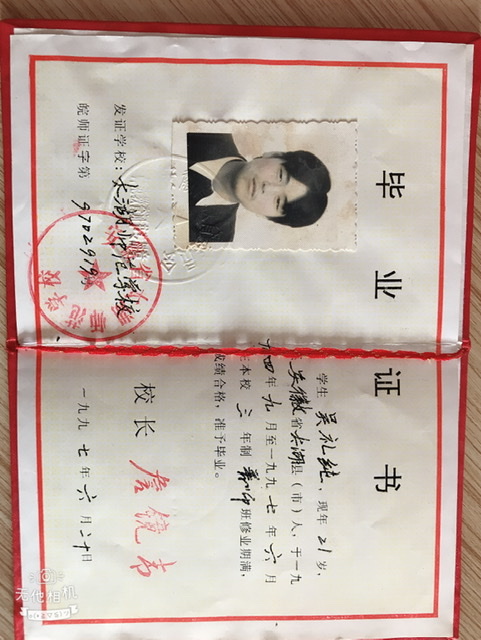 毕业证书
发证学校：太湖师范学校
皖师证字第 9702919号
学生 吴礼纯，现年21岁，
安徽省太湖县（市）人，于一九
九四年九月至一九九七年六月
在本校 三 年制 普师 班修业期满，
成绩合格，准予毕业。
校长
一九九七年六月二十日
无他相机